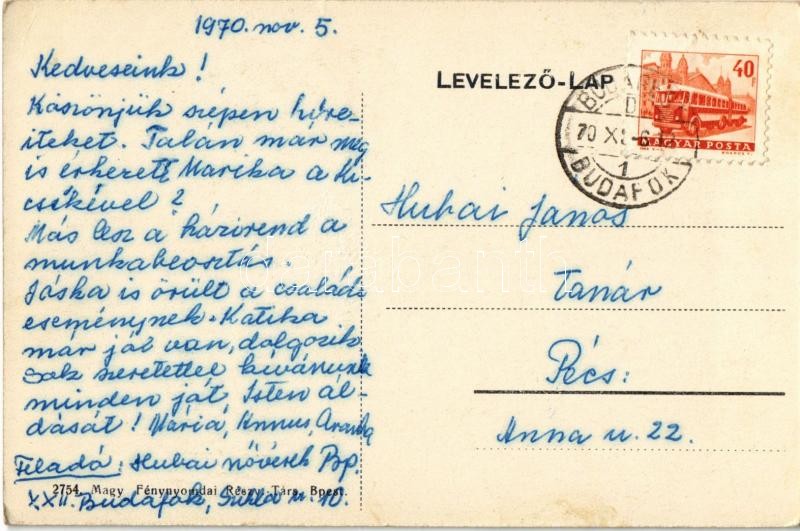 1970. nov. 5.
Kedveseink!
Köszönjük szépen híre-
iteket. Talán már meg
is érkezett Marika a ki-
csikével?
Más lesz a házirend a
munkabeosztás.
Jóska is örült a családi
eseménynek. Katika
már jól van, dolgozik
Sok szeretettel kívánunk
minden jót, Isten ál-
dását! Mária, Annus, Aranka
Feladó: Hubai nővérek Bp.
2754. Magy Fénynyomdai Részv.-Társ. Bpest.
XXII. Budafok, u. 10.
LEVELEZŐ-LAP
40 f
MAGYAR POSTA
BUDAPEST
70 XI -6
1
BUDAFOK
Hubai János
tanár
Pécs:
Anna u. 22.
databanth